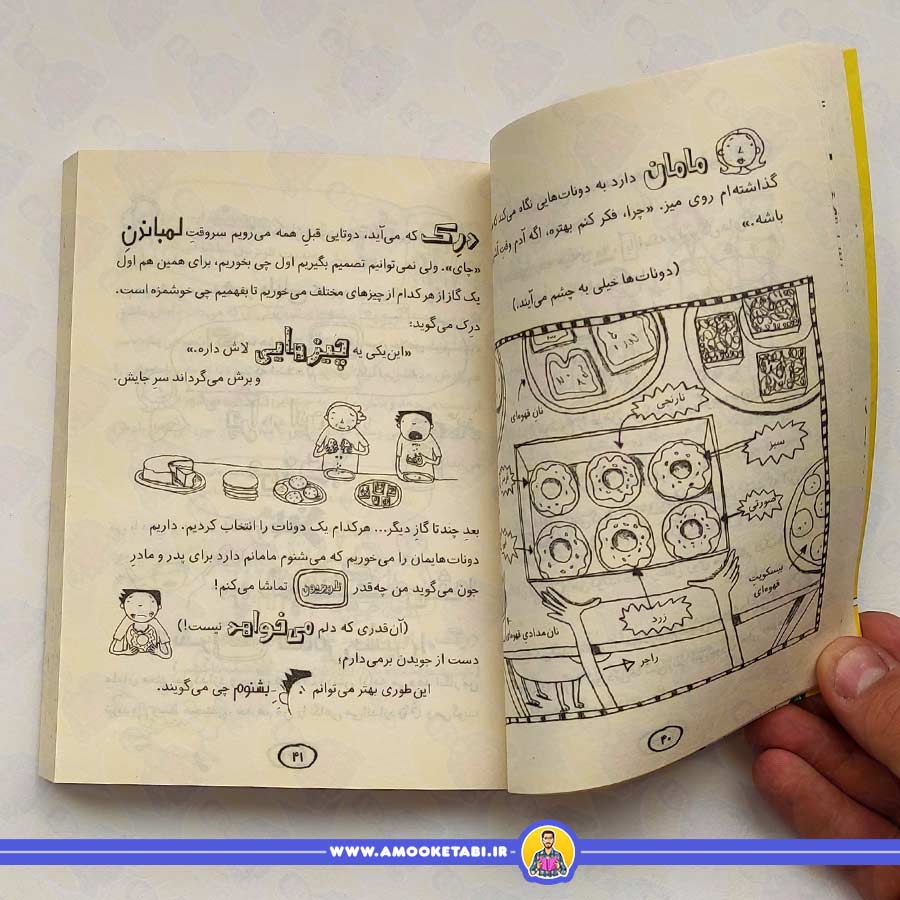 مامان دارد به دونات‌هایی نگاه می‌کند
گذاشته‌ام روی میز. «چرا، فکر کنم بهتره، اگه آدم وقت
باشه.»
(دونات‌ها خیلی به چشم می‌آیند.)
نان قهوه‌ای
نارنجی
سبز
صورتی
بیسکویت
قهوه‌ای
زرد
نان مدادی قهوه‌ای
راجر
۴۰
درک که می‌آید، دوتایی قبلِ همه می‌رویم سروقتِ لمباندن
«چای». ولی نمی‌توانیم تصمیم بگیریم اول چی بخوریم، برای همین هم اول
یک گاز از هر کدام از چیزهای مختلف می‌خوریم تا بفهمیم چی خوشمزه است.
درک می‌گوید:
«این‌یکی یه چیزهایی لاش داره.»
و برش می‌گرداند سرِ جایش.
بعدِ چندتا گازِ دیگر... هرکدام یک دونات را انتخاب کردیم. داریم
دونات‌هایمان را می‌خوریم که می‌شنوم مامانم دارد برای پدر و مادرِ
جون می‌گوید من چه‌قدر تلویزیون تماشا می‌کنم!
(آن‌قدری که دلم می‌خواهد نیست!)
دست از جویدن برمی‌دارم؛
این‌طوری بهتر می‌توانم بشنوم چی می‌گویند.
۴۱
WWW.AMOOKETABI.IR